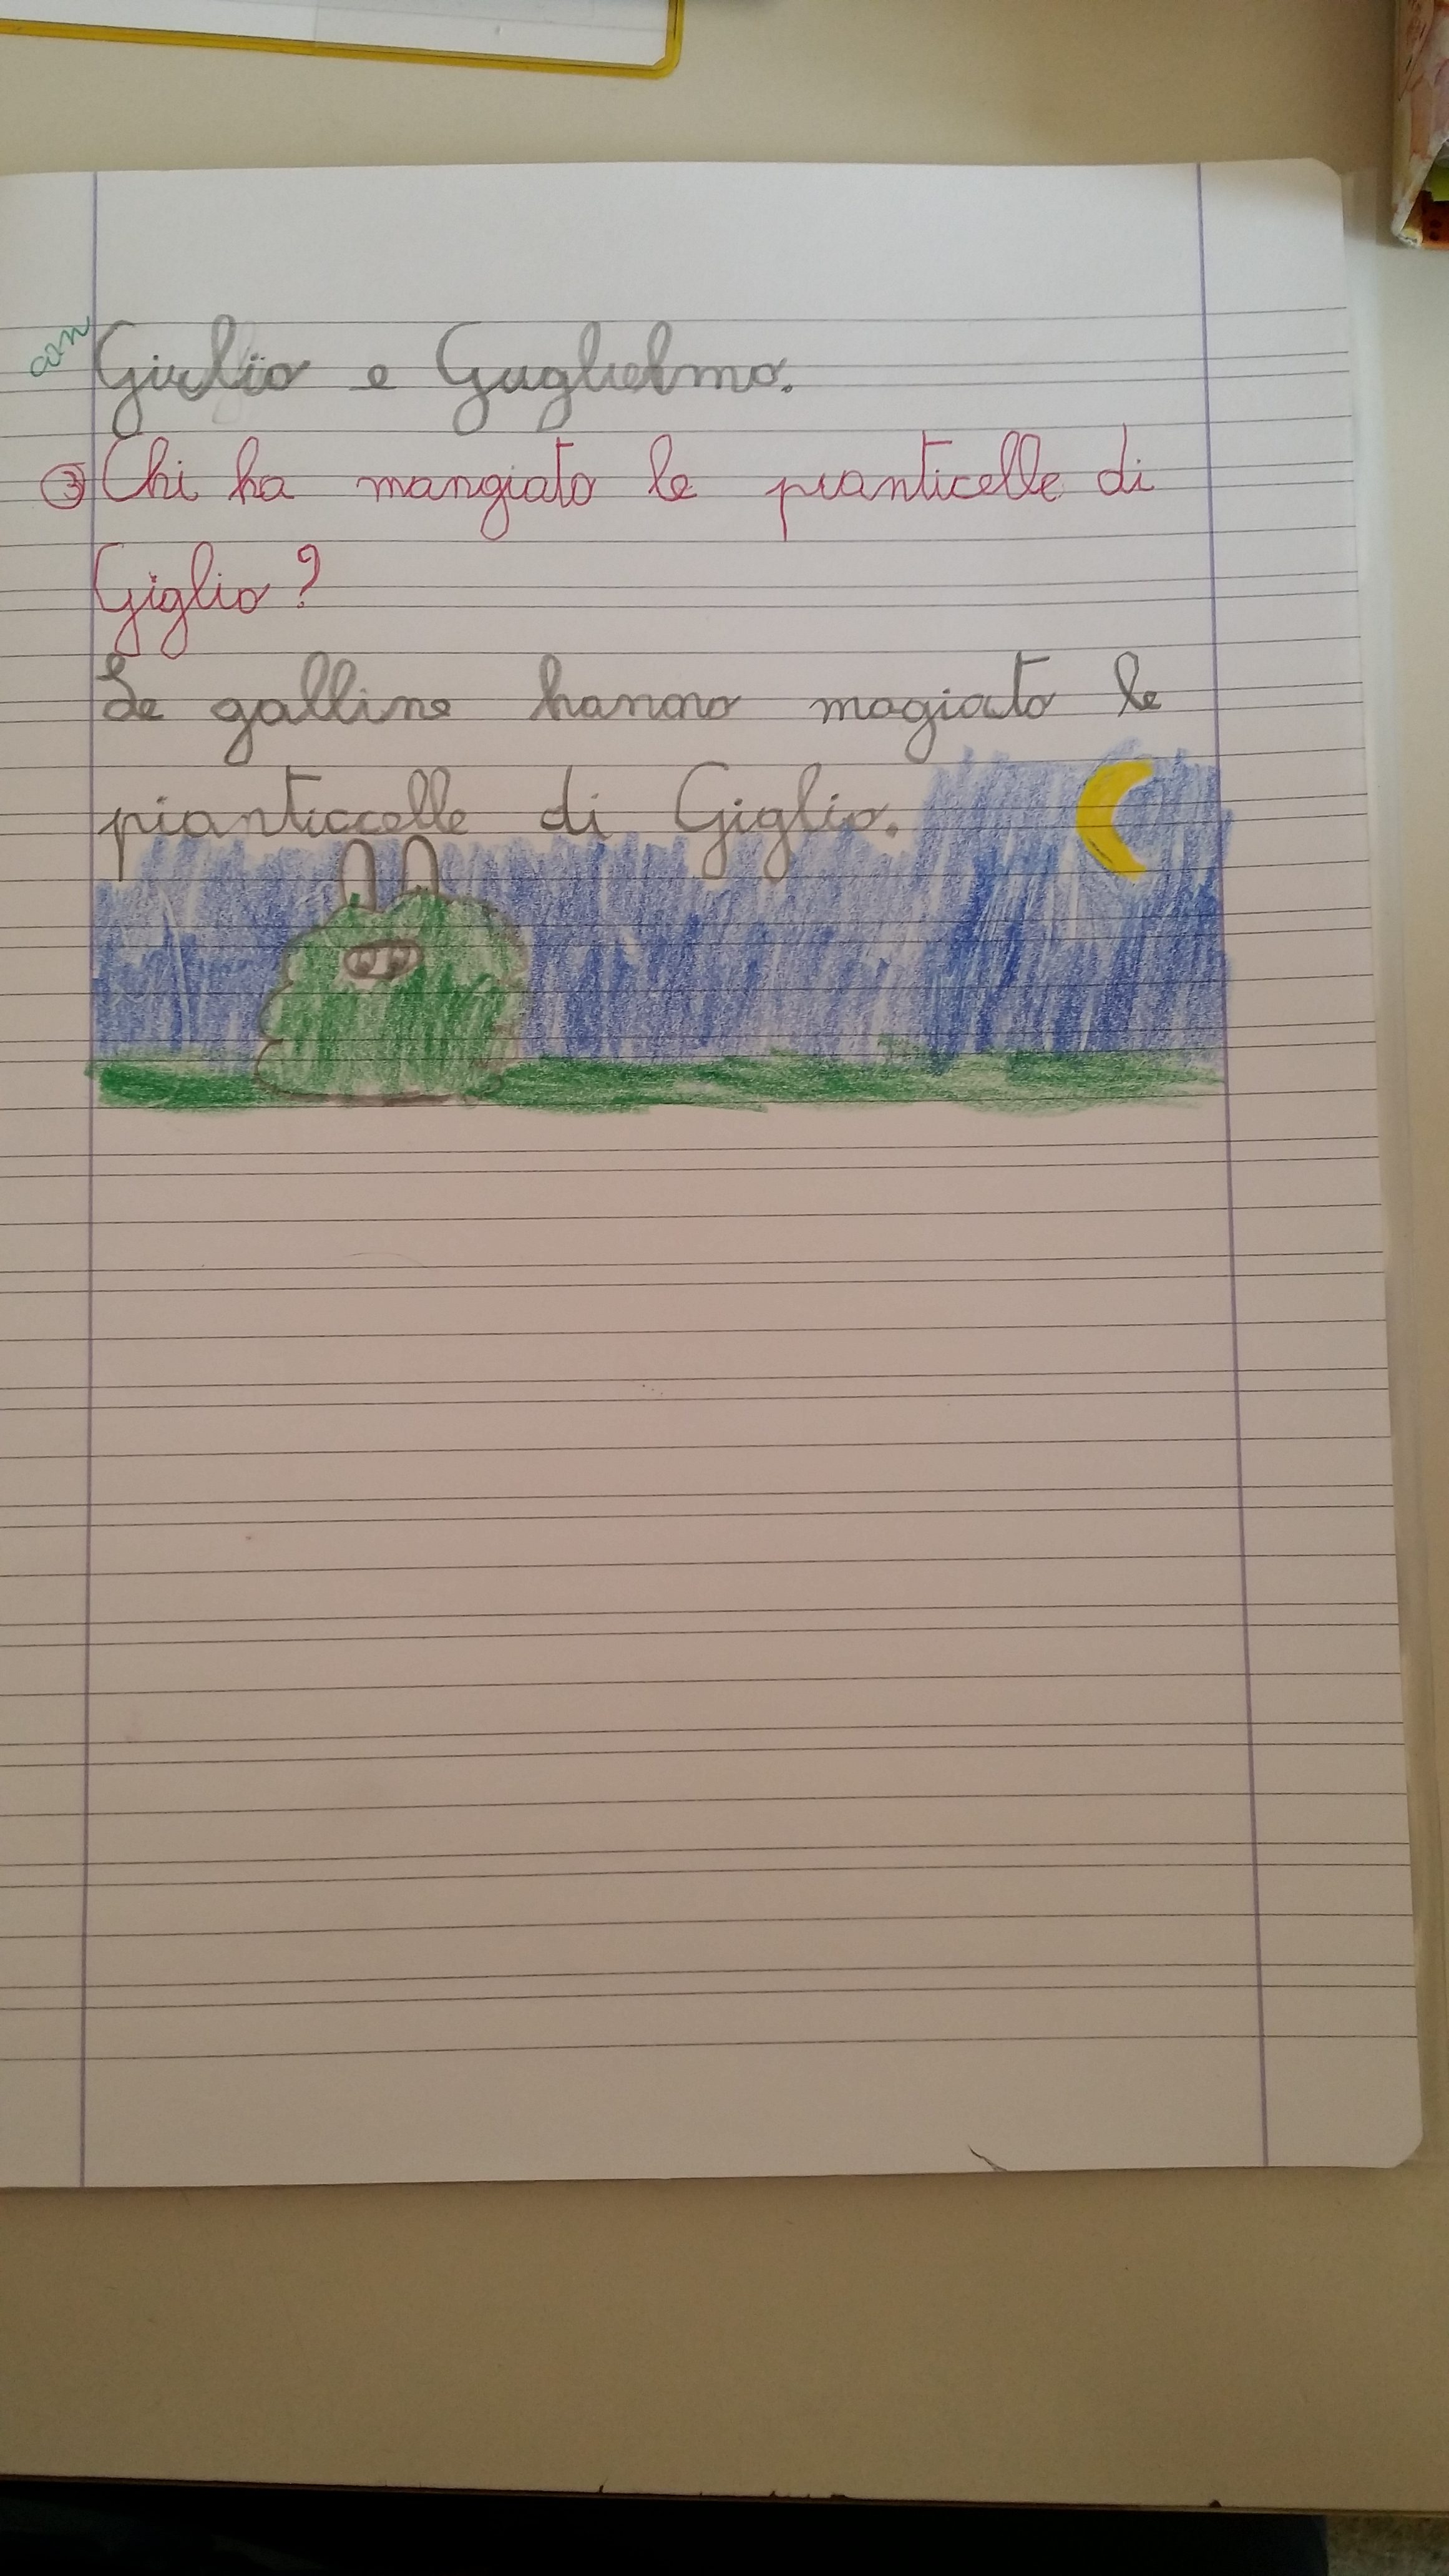 con Giulio e Guglielmo.
③ Chi ha mangiato le pianticelle di
Giglio?
Le galline hanno magiato le
pianticcelle di Giglio.